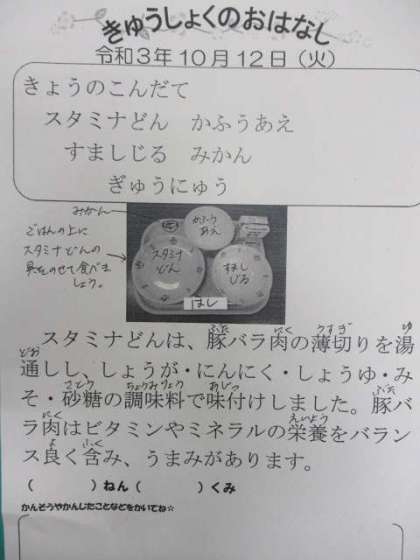 きゅうしょくのおはなし
令和3年10月12日（火）
きょうのこんだて
スタミナどん　かふうあえ
すましじる　みかん
ぎゅうにゅう
みかん
ごはんの上に
スタミナどんの
具をのせて食べま
しょう。
かふう
あえ
スタミナ
どん
すまし
じる
はし
スタミナどんは、豚バラ肉の薄切りを湯
通しし、しょうが・にんにく・しょうゆ・み
そ・砂糖の調味料で味付けしました。豚バ
ラ肉はビタミンやミネラルの栄養をバラン
ス良く含み、うまみがあります。
（　　　　）ねん（　　　　）くみ
かんそうやかんじたことなどをかいてね☆